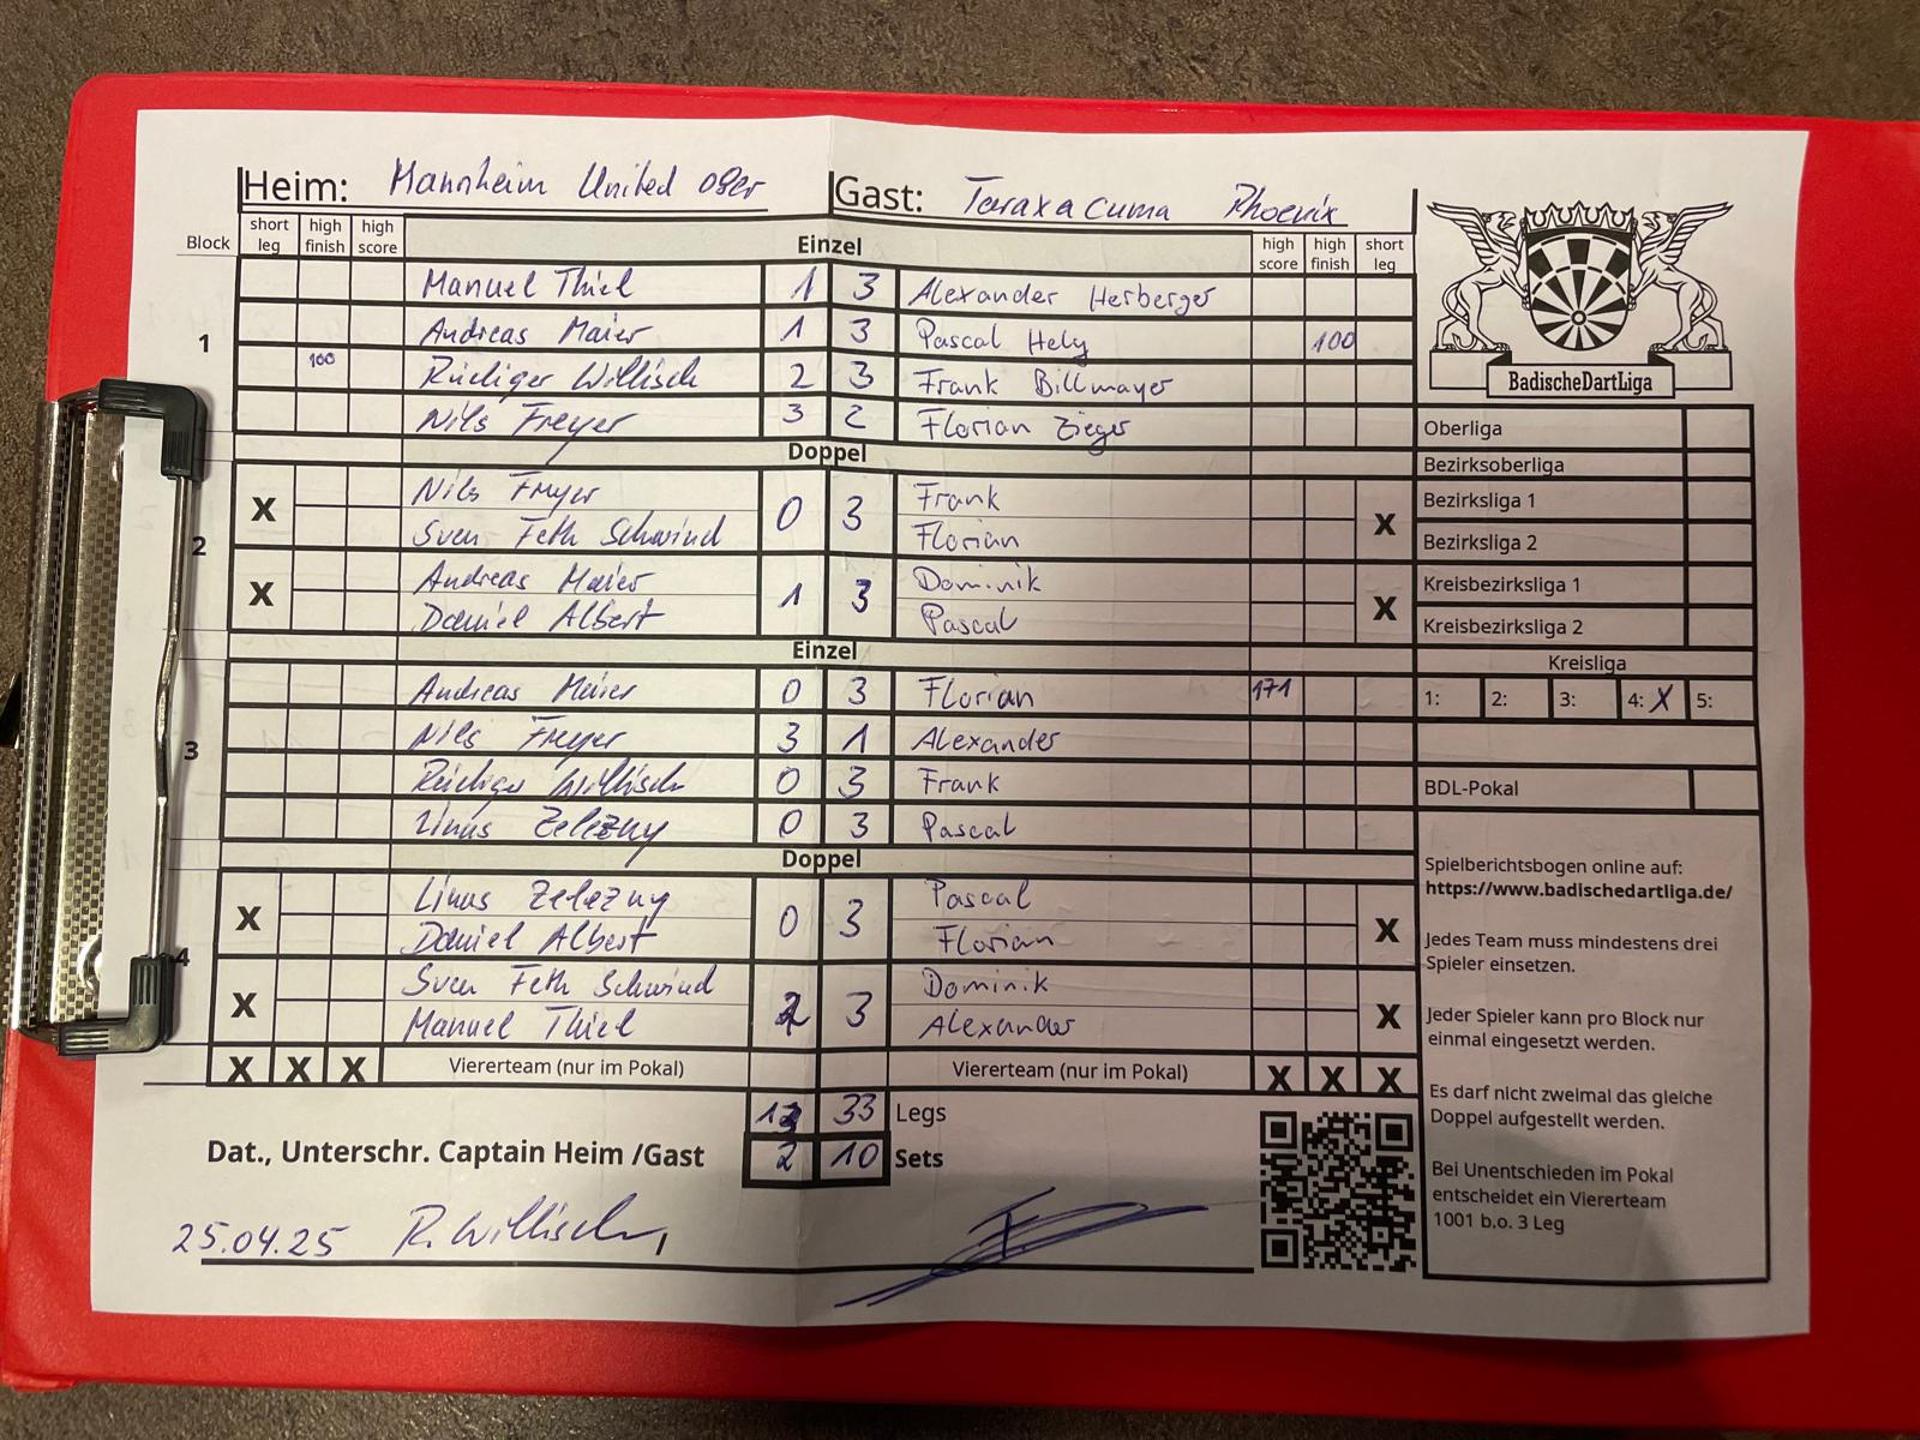 Heim: Mannheim United 08er Gast: Taraxacuma Phoenix
Block short leg high finish high score Einzel high score high finish short leg
Manuel Thiel 1 3 Alexander Herberger
1 Andreas Maier 1 3 Pascal Hely 100
100 Rüdiger Willisch 2 3 Frank Billmayer
Nils Freyer 3 2 Florian Zieger
Doppel
Nils Freyer Frank
X 0 3 X
Sven Feth Schwind Florian
2
Andreas Maier Dominik
X 1 3 X
Daniel Albert Pascal
Einzel
Andreas Maier 0 3 Florian 171
3 Nils Freyer 3 1 Alexander
Rüdiger Willisch 0 3 Frank
Linus Zelezny 0 3 Pascal
Doppel
Linus Zelezny Pascal
X 0 3 X
Daniel Albert Florian
4
Sven Feth Schwind Dominik
X 2 3 X
Manuel Thiel Alexander
X X X Viererteam (nur im Pokal) Viererteam (nur im Pokal) X X X
33 Legs
Dat., Unterschr. Captain Heim /Gast 2 10 Sets
25.04.25 R. Willisch
BadischeDartLiga
Oberliga
Bezirksoberliga
Bezirksliga 1
Bezirksliga 2
Kreisbezirksliga 1
Kreisbezirksliga 2
Kreisliga
1: 2: 3: 4: X 5:
BDL-Pokal
Spielberichtsbogen online auf:
https://www.badischedartliga.de/
Jedes Team muss mindestens drei
Spieler einsetzen.
Jeder Spieler kann pro Block nur
einmal eingesetzt werden.
Es darf nicht zweimal das gleiche
Doppel aufgestellt werden.
Bei Unentschieden im Pokal
entscheidet ein Viererteam
1001 b.o. 3 Leg